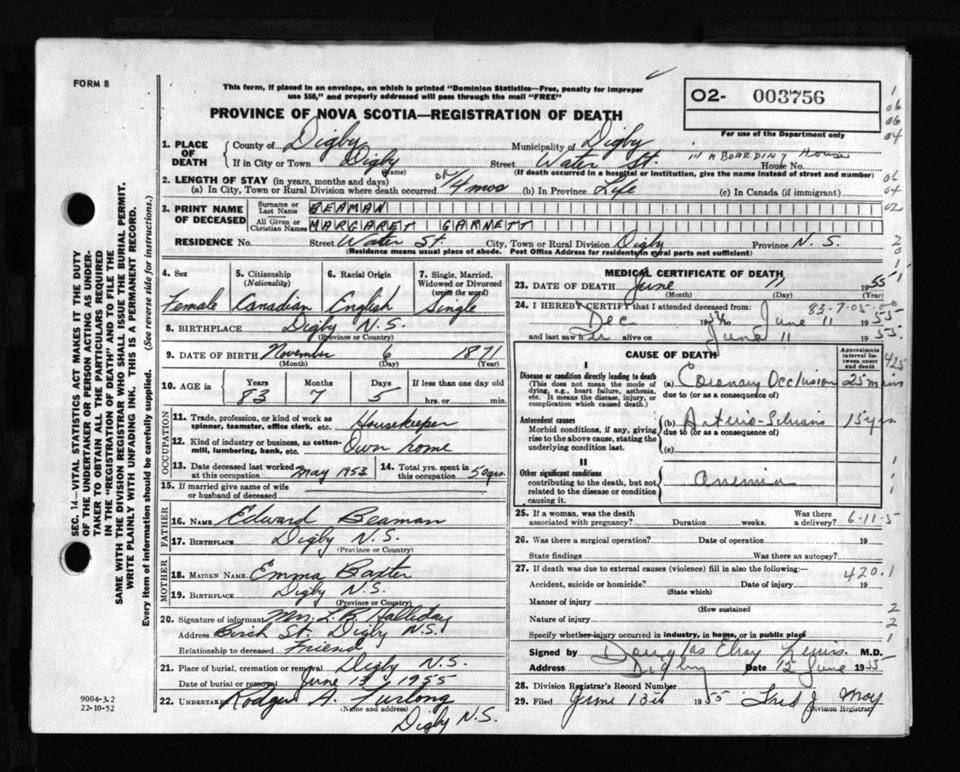 FORM 8
This form, if placed in an envelope, on which is printed "Dominion Statistics—Free, penalty for improper
use $50," and properly addressed will pass through the mail "FREE"
O2- 003756
For use of the Department only
PROVINCE OF NOVA SCOTIA—REGISTRATION OF DEATH
1. PLACE OF DEATH
County of Digby Municipality of Digby
If in City or Town Digby (Name) Street Water St. House No. in a Boarding House
(If death occurred in a hospital or institution, give the name instead of street and number)
2. LENGTH OF STAY (in years, months and days)
(a) In City, Town or Rural Division where death occurred 14 mos (b) In Province Life (c) In Canada (if immigrant)
3. PRINT NAME OF DECEASED
Surname or Last Name BEAMAN
All Given or Christian Names MARGARET GARNETT
RESIDENCE No. Street Water St. City, Town or Rural Division Digby Province N. S.
(Residence means usual place of abode. Post Office Address for residents in rural parts not sufficient)
4. Sex 5. Citizenship (Nationality) 6. Racial Origin 7. Single, Married, Widowed or Divorced (write the word)
Female Canadian English Single
8. BIRTHPLACE Digby N.S.
(Province or Country)
9. DATE OF BIRTH November 6 1871
(Month) (Day) (Year)
10. AGE in Years Months Days If less than one day old
83 7 5 hrs. or min.
OCCUPATION
11. Trade, profession, or kind of work as spinner, teamster, office clerk, etc. Housekeeper
12. Kind of industry or business, as cotton-mill, lumbering, bank, etc. Own home
13. Date deceased last worked at this occupation May 1953 14. Total yrs. spent in this occupation 50 yrs.
15. If married give name of wife or husband of deceased
FATHER
16. NAME Edward Beaman
17. BIRTHPLACE Digby N.S.
(Province or Country)
MOTHER
18. MAIDEN NAME Emma Baxter
19. BIRTHPLACE Digby N.S.
(Province or Country)
20. Signature of informant Mrs. L. B. Halliday
Address Birch St. Digby N.S.
Relationship to deceased Friend
21. Place of burial, cremation or removal Digby N.S.
Date of burial or removal June 13 1955
22. UNDERTAKER Rodger A. Furlong
(Name and address)
Digby N.S.
MEDICAL CERTIFICATE OF DEATH
23. DATE OF DEATH June 11 1955
(Month) (Day) (Year)
83-7-05-
24. I HEREBY CERTIFY that I attended deceased from
Dec 1954 to June 11 1955
and last saw her alive on June 11 1955
CAUSE OF DEATH
Approximate interval between onset and death
425
I
Disease or condition directly leading to death
(This does not mean the mode of dying, e.g., heart failure, asthenia, etc. It means the disease, injury, or complication which caused death.)
(a) Coronary Occlusion 25 mins
due to (or as a consequence of)
Antecedent causes
Morbid conditions, if any, giving rise to the above cause, stating the underlying condition last.
(b) Arterio-Sclerosis 15 yrs.
due to (or as a consequence of)
(c)
II
Other significant conditions contributing to the death, but not related to the disease or condition causing it.
anemia
25. If a woman, was the death associated with pregnancy? Duration weeks. Was there a delivery? 6-11-5
26. Was there a surgical operation? Date of operation 19
State findings Was there an autopsy?
27. If death was due to external causes (violence) fill in also the following:—
420.1
Accident, suicide or homicide? Date of injury 19
(State which)
Manner of injury
(How sustained
Nature of injury
Specify whether injury occurred in industry, in home, or in public place
Signed by Douglas Elroy Lewis M.D.
Address Digby Date 12 June 1955
28. Division Registrar's Record Number
29. Filed June 13th 1955 Fred J May
Division Registrar
9004-J.2
22-10-52
SEC. 14—VITAL STATISTICS ACT MAKES IT THE DUTY
OF THE UNDERTAKER OR PERSON ACTING AS UNDER-
TAKER TO OBTAIN ALL THE PARTICULARS REQUIRED
IN THE "REGISTRATION OF DEATH" AND TO FILE THE
SAME WITH THE DIVISION REGISTRAR WHO SHALL ISSUE THE BURIAL PERMIT.
WRITE PLAINLY WITH UNFADING INK. THIS IS A PERMANENT RECORD.
Every item of information should be carefully supplied. (See reverse side for instructions.)